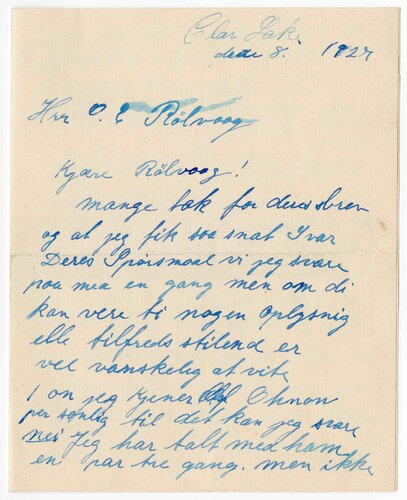 Clar Lake
den 8. 1927
Hrr O. E Rölvaag
Kjære Rölvaag!
mange tak for deres brev
og at jeg fik saa snat Svar
Deres Spørsmaal vi jeg svare
paa mea en gang men om di
kan vere ti nogen Oplysnig
elle tilfreds stilend er
vel vanskelig at vite
1 om jeg kjener Ohnon
per sonlig til det kan jeg svare
nei Jeg har talt med ham
en par tre gang. men ikke